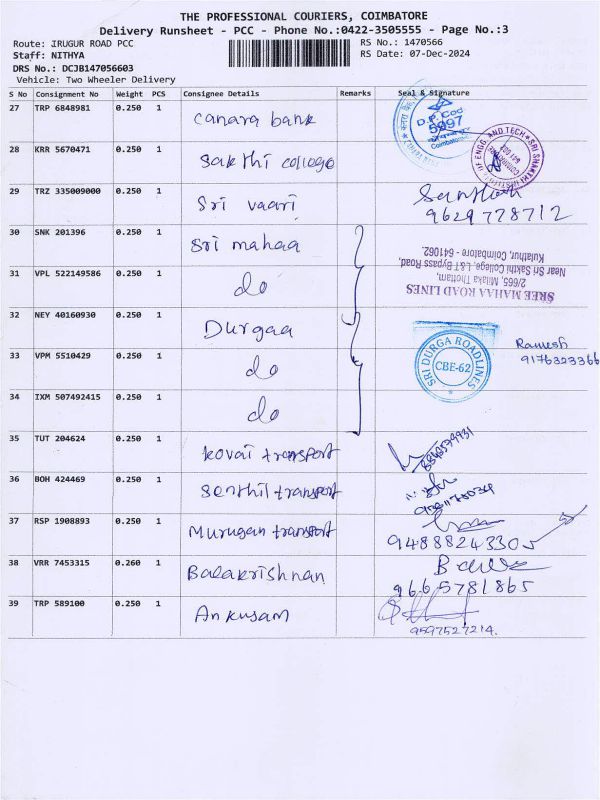 THE PROFESSIONAL COURIERS, COIMBATORE
Delivery Runsheet - PCC - Phone No.:0422-3505555 - Page No.:3
Route: IRUGUR ROAD PCC
RS No.: 1470566
Staff: NITHYA
RS Date: 07-Dec-2024
DRS No.: DCJB147056603
Vehicle: Two Wheeler Delivery
S No Consignment No Weight PCS Consignee Details Remarks Seal & Signature
27 TRP 6848981 0.250 1 Canara bank
D.P. Cod
5097
Coimbatore
28 KRR 5670471 0.250 1 Sakthi college
OF ENGG. AND TECH ★ SRI SHAKTHI
29 TRZ 335009000 0.250 1 Sri vaari Santhosh
9629778712
30 SNK 201396 0.250 1 Sri mahaa
31 VPL 522149586 0.250 1 do
SREE MAHAA ROAD LINES
2/665, Milaka Thottam,
Near Sri Sakthi College, L&T Bypass Road,
Kulathur, Coimbatore - 641062.
32 NEY 40160930 0.250 1 Durgaa
33 VPM 5510429 0.250 1 do
SRI DURGA ROADLINES
CBE-62
Ramesh
9176323366
34 IXM 507492415 0.250 1 do
35 TUT 204624 0.250 1 Kovai transport
36 BOH 424469 0.250 1 Senthil transport
37 RSP 1908893 0.250 1 Murugan transport
9488824330
38 VRR 7453315 0.260 1 Balakrishnan
9665781865
39 TRP 589100 0.250 1 Ankusam
9597527214.